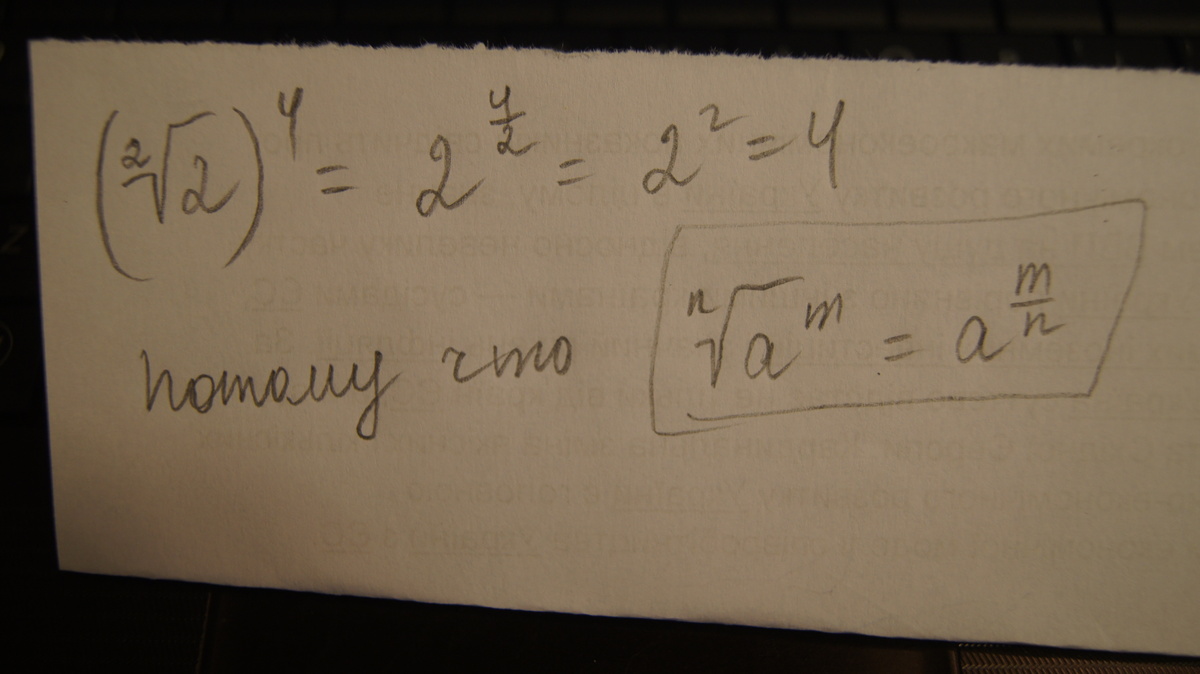 (²√2)⁴ = 2^(4/2) = 2² = 4
потому что ⁿ√a^m = a^(m/n)